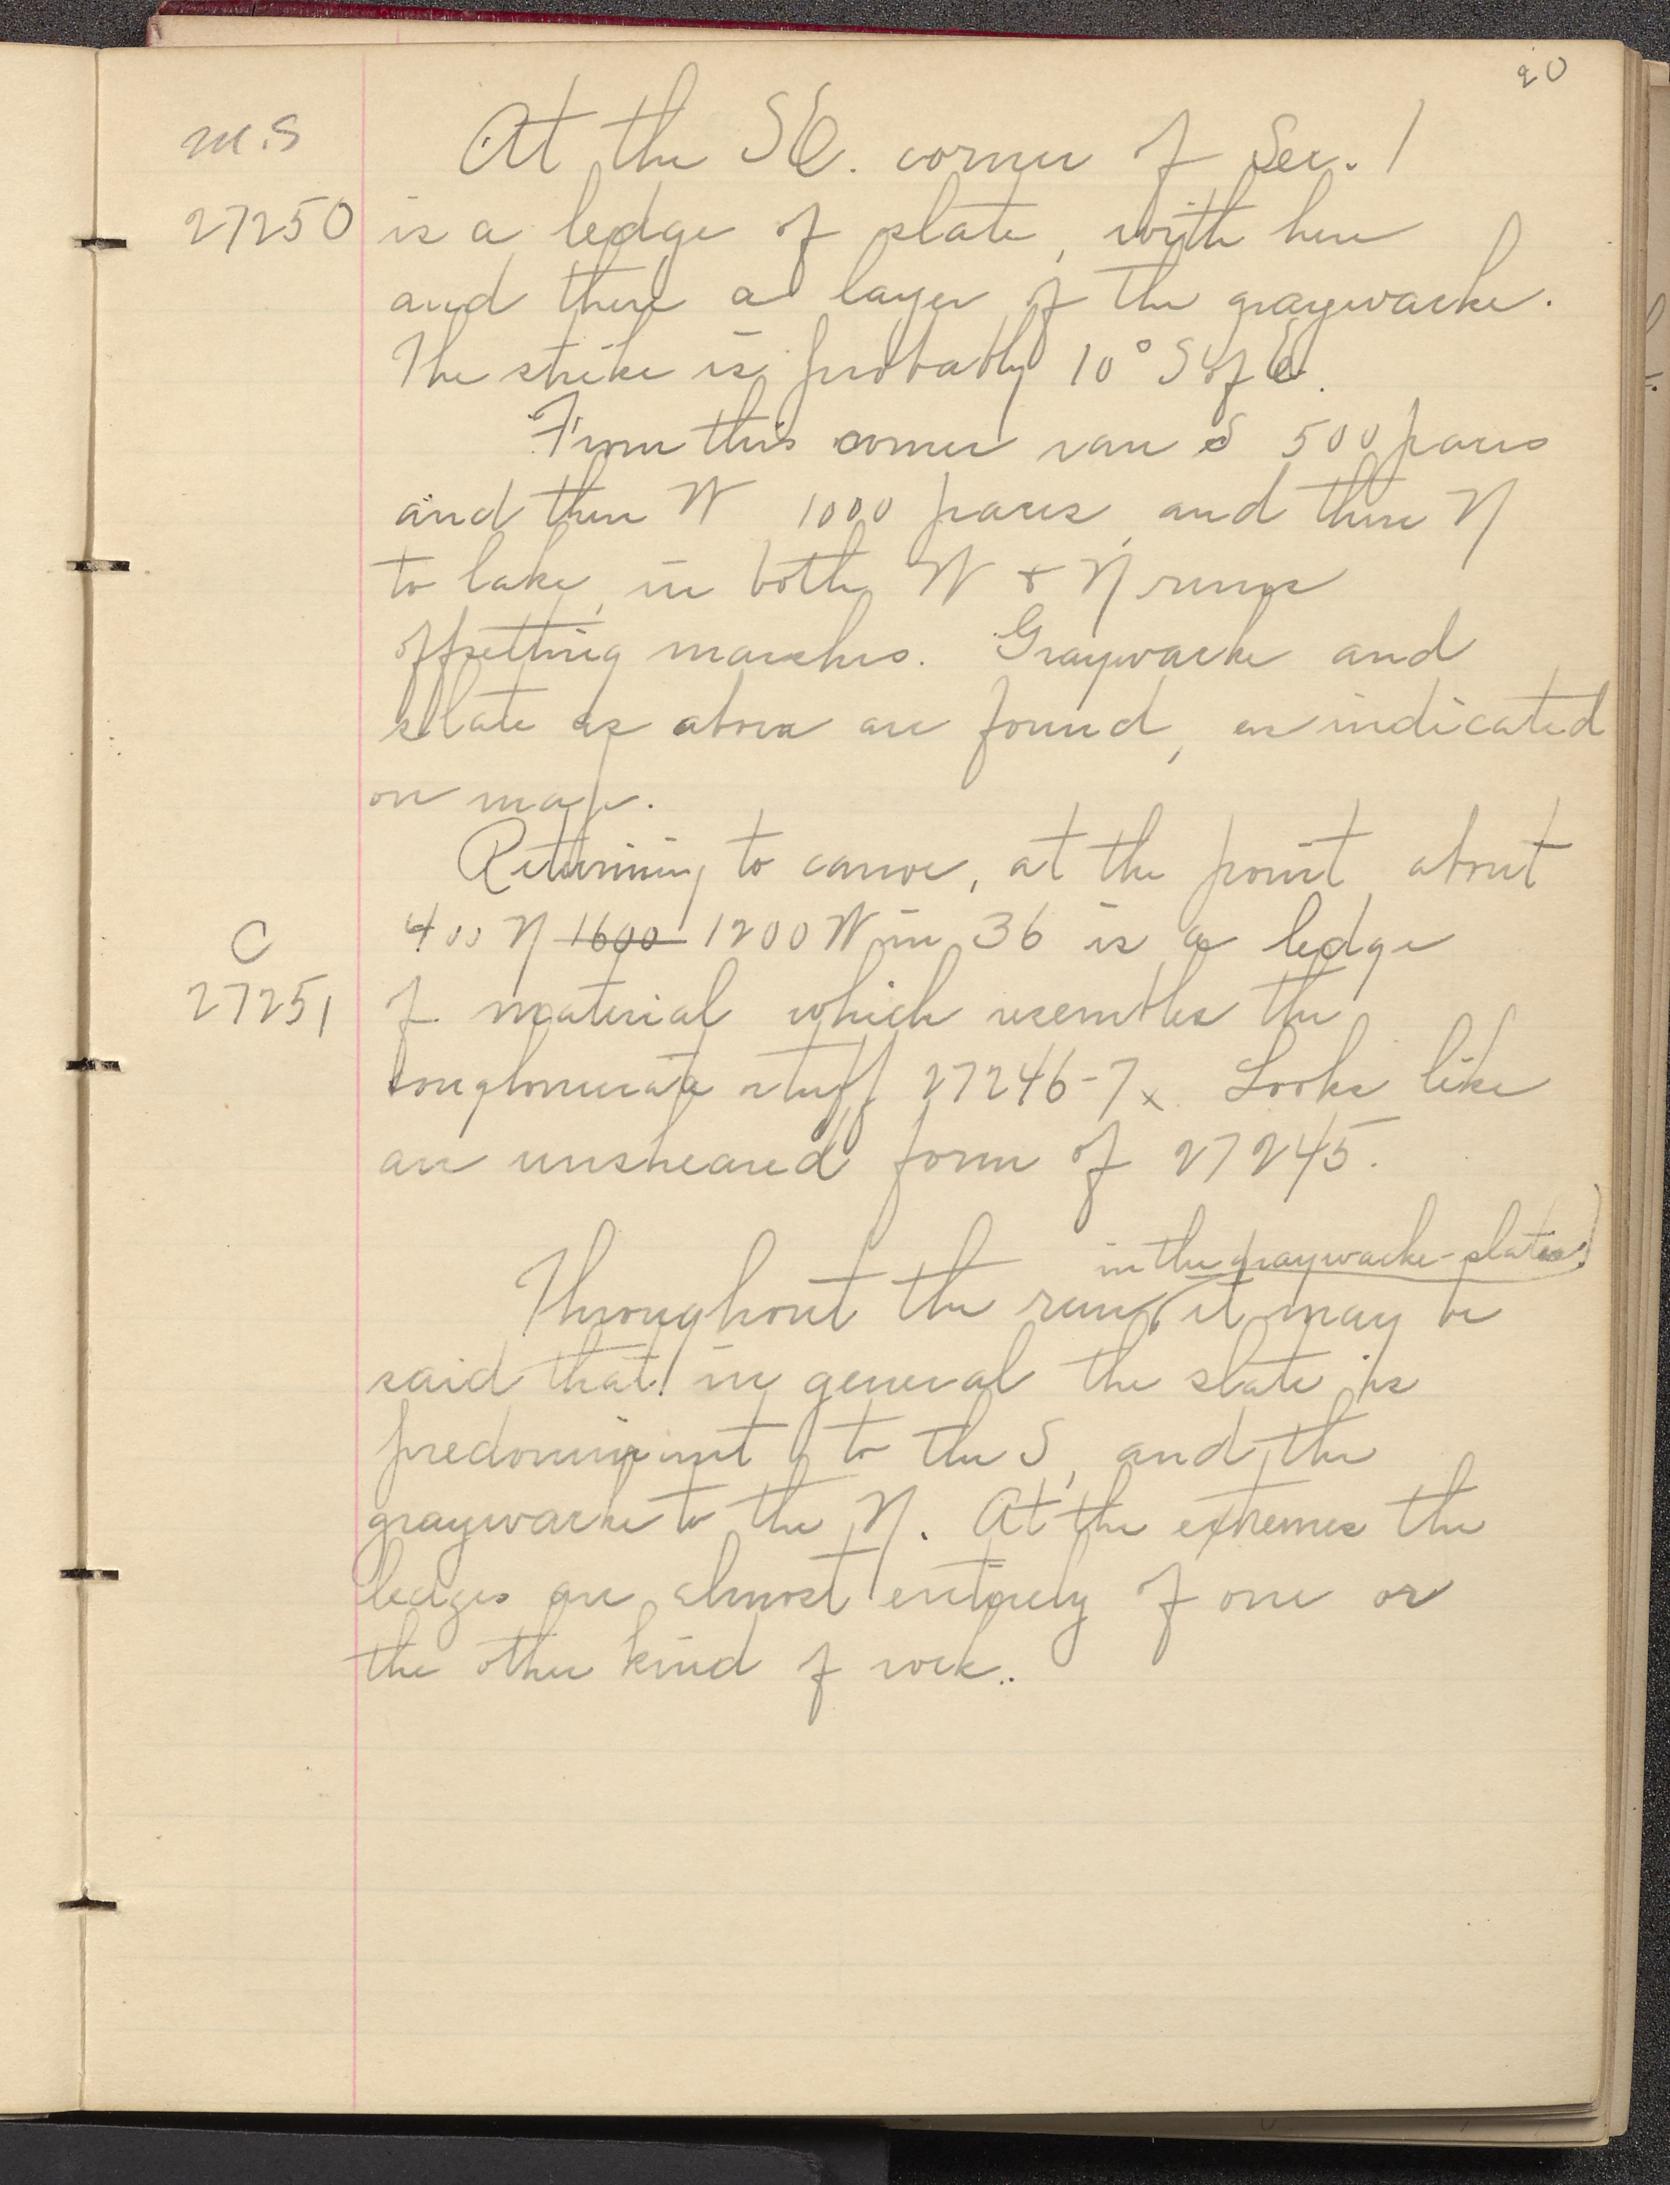 20
M.S
At the SE. corner of Sec. 1
27250 is a ledge of slate, with here
and there a layer of the graywacke.
The strike is probably 10° S of E.
From this corner ran S 500 paces
and then W 1000 paces, and thence N
to lake, in both W & N runs
offsetting marshes. Graywacke and
slate as above are found, as indicated
on map.
Returning to canoe, at the point about
C
400 N 1600 1200 W in 36 is a ledge
27251 of material which resembles the
conglomerate stuff 27246-7x. Looks like
an unsheared form of 27245.
in the graywacke-slates)
Throughout the run, it may be
said that in general the slate is
predominant to the S, and the
graywacke to the N. At the extremes the
ledges are almost entirely of one or
the other kind of rock.